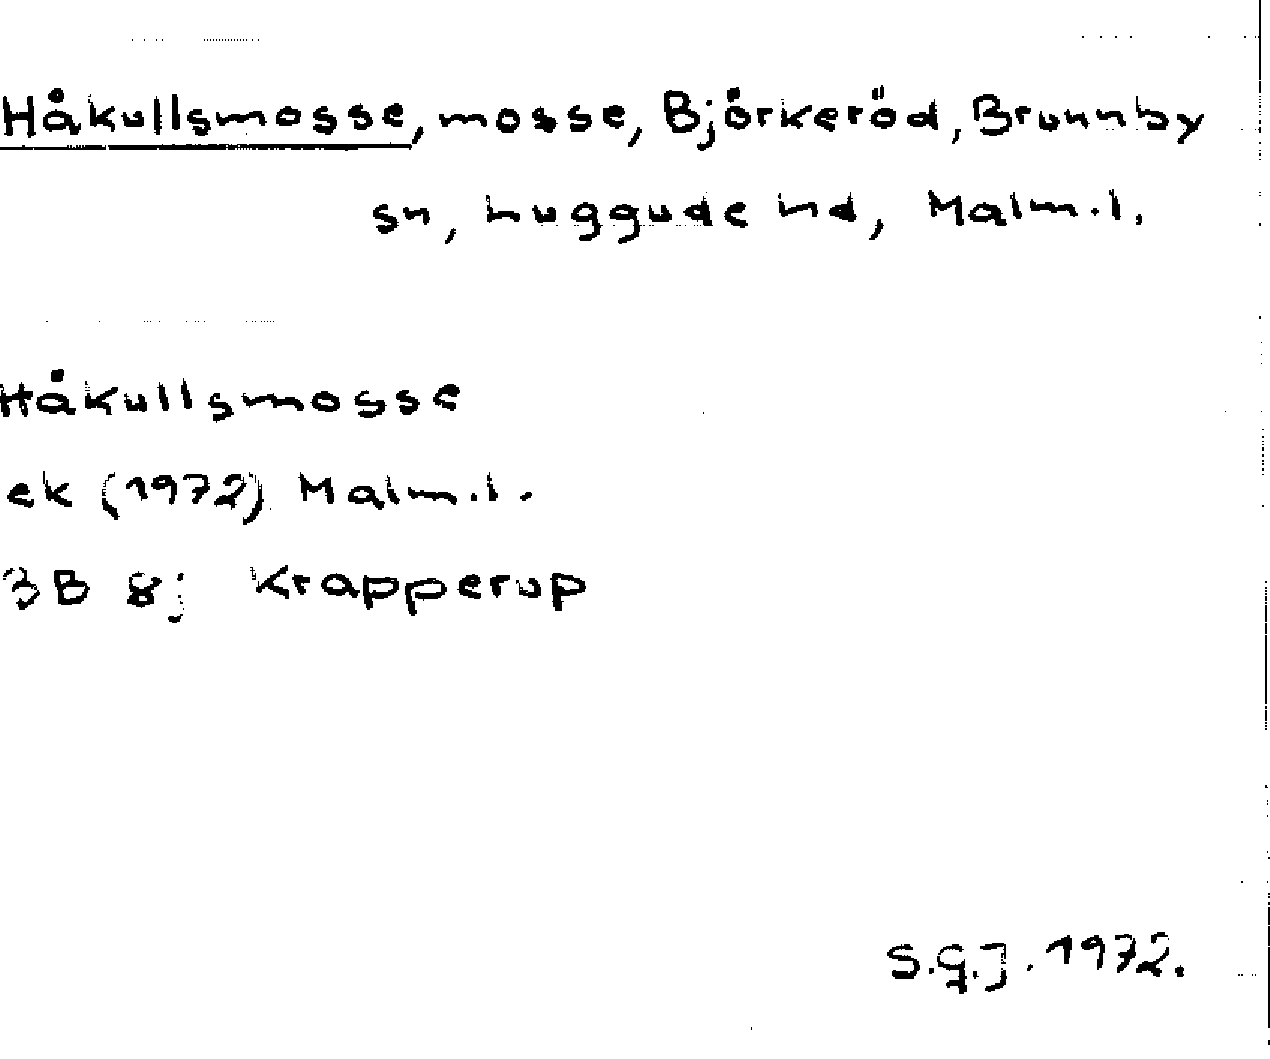 Håkullsmosse, mosse, Björkeröd, Brunnby
sn, Luggude hd, Malm.l.
Håkullsmosse
ek (1972) Malm.l.
3B 8j Krapperup
S.G.J. 1972.